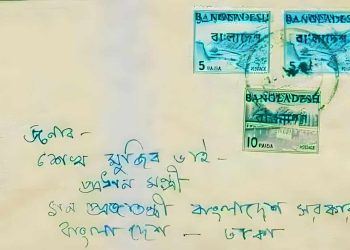 BANGLADESH
বাংলাদেশ
5 PAISA POSTAGE
BANGLADESH
বাংলাদেশ
5 POSTAGE
BANGLADESH
বাংলাদেশ
10 PAISA POSTAGE
জনাব -
শেখ মুজিব ভাই -
প্রধান মন্ত্রী
প্রজাতন্ত্রী বাংলাদেশ সরকার
বাংলা দেশ - ঢাকা